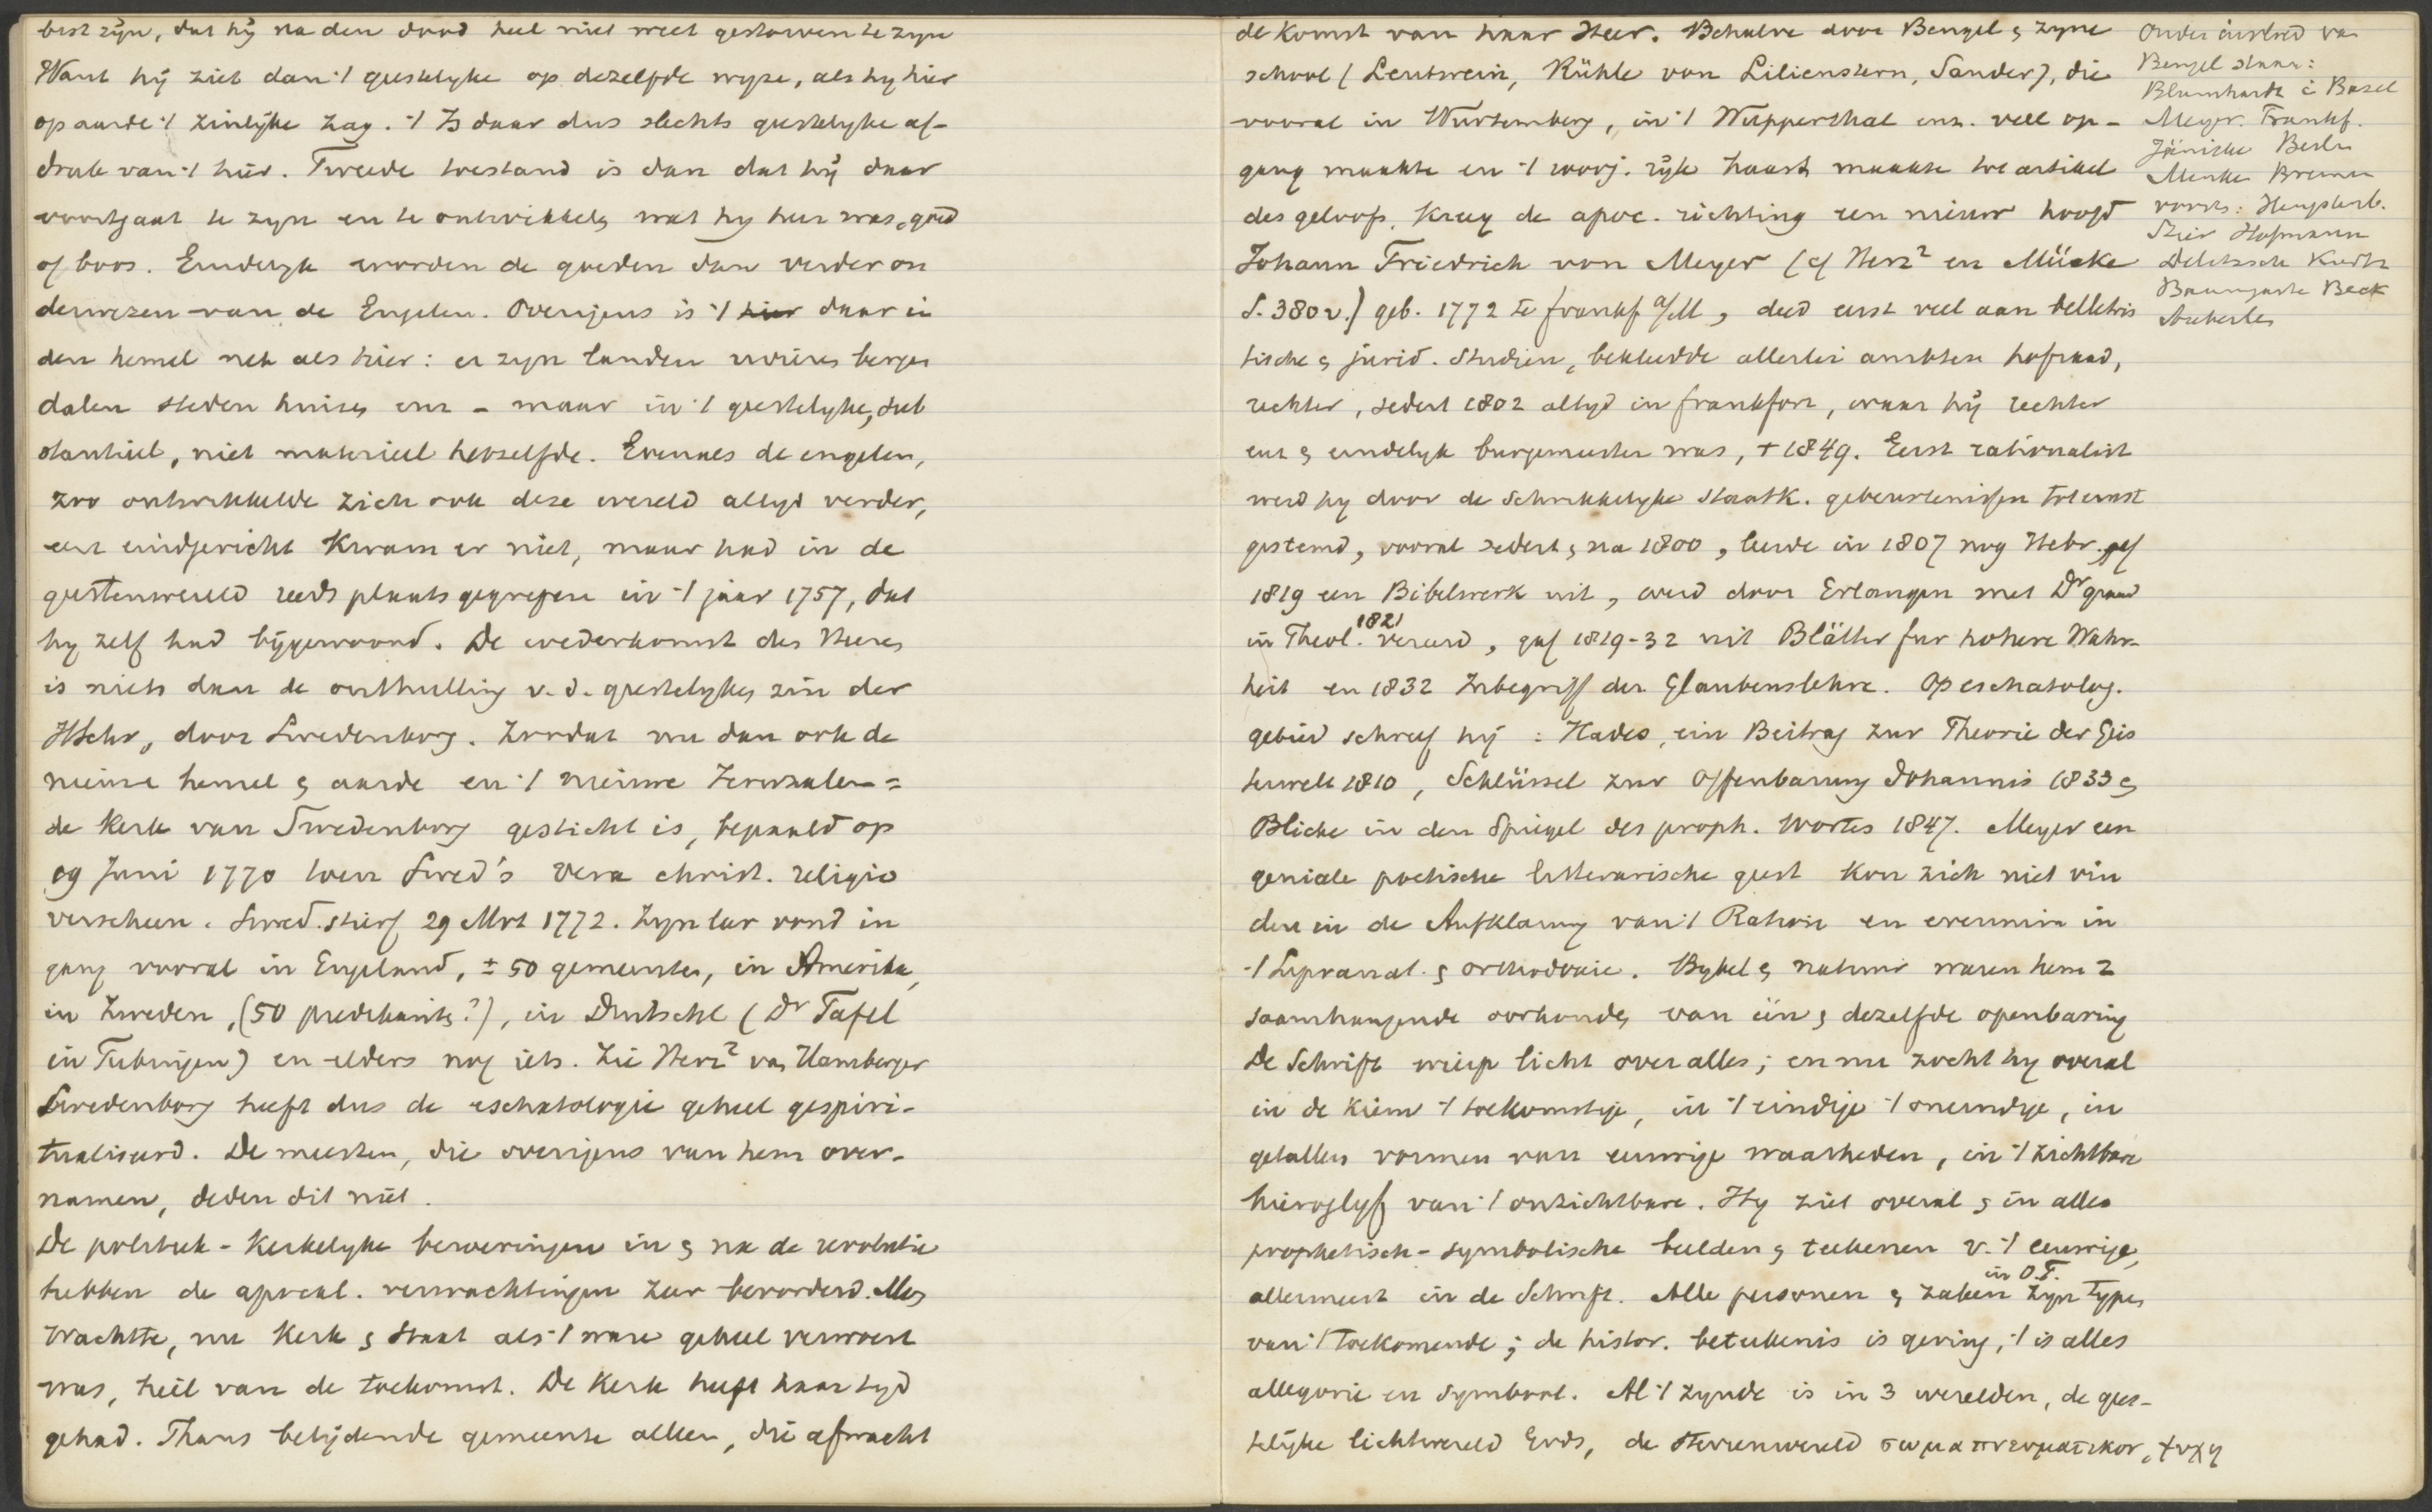 best zijn, dat hij na den dood heel niet weet gestorven te zijn
Want hij ziet dan 't geestelyke op dezelfde wyze, als hy hier
op aarde 't zinlijke zag. 't Is daar dus slechts geestelyke af-
druk van 't hier. Tweede toestand is dan dat hij daar
voortgaat te zyn en te ontwikkelen wat hy hier was, goed
of boos. Eindelyk worden de goeden dan verder on
derwezen van de Engelen. Overigens is 't hier daar in
den hemel net als hier: er zyn landen rivieren bergen
dalen steden huizen enz - maar in 't geestelyke, sub
stantieel, niet materieel hetzelfde. Evenals de engelen,
zoo ontwikkelde zich ook deze wereld altyd verder,
een eindgericht kwam er niet, maar had in de
geestenwereld reeds plaats gegrepen in 't jaar 1757, dat
hy zelf had bijgewoond. De wederkomst des Heeren
is niets dan de onthulling v. d. geestelyken zin der
HSchr, door Swedenborg. Zoodat nu dan ook de
nieuwe hemel en aarde en 't nieuwe Jeruzalem =
de Kerk van Swedenborg gesticht is, bepaald op
19 Juni 1770 toen Swed's vera christ. religio
verscheen. Swed. stierf 29 Mrt 1772. Zyn leer vond in
gang vooral in Engeland, ± 50 gemeenten, in Amerika,
in Zweden, (50 predikants?), in Duitschl (Dr Tafel
in Tubingen) en elders nog iets. Zie Herz² van Hamberger
Swedenborg heeft dus de eschatologie geheel gespiri-
tualiseerd. De meesten, die overigens van hem over-
namen, deden dit niet.
De politiek-kerkelyke beweringen in en na de revolutie
hebben de apocal. verwachtingen zeer bevorderd. Alles
wachtte, nu Kerk en Staat als 't ware geheel verwoest
was, heil van de toekomst. De Kerk heeft haar tyd
gehad. Thans belijdende gemeente alleen, die afwacht
de komst van haar Heer. Behalve door Bengel en zyne
school (Leutwein, Rühle von Lilienstern, Sander), die
vooral in Wurtemberg, in 't Wupperthal enz. veel op-
gang maakte en 't 1000j. rijk haast maakte tot artikel
des geloofs, kreeg de apoc. richting een nieuw hoofd
Johann Friedrich von Meyer (cf Herz² en Mücke
S. 380 v.) geb. 1772 te frankf a/M, deed eerst veel aan belletris
tische en jurid. studien, bekleedde allerlei ambten hofraad,
rechter, sedert 1802 altyd in frankfort, waar hij rechter
enz en eindelyk burgemeester was, + 1849. Eerst rationalist
werd hy door de schrikkelyke staatk. gebeurtenissen tot ernst
gestemd, vooral sedert en na 1800, leerde in 1807 nog Hebr. gaf
1819 een Bibelwerk uit, werd door Erlangen met Dr graad
in Theol. 1821 vereerd, gaf 1819-32 uit Blätter fur hohere Wahr-
heit en 1832 Inbegriff der Glaubenslehre. Op eschatolog.
gebied schreef hij : Hades, ein Beitrag zur Theorie der Geis
terwelt 1810, Schlüssel zur Offenbarung Johannis 1833 en
Blicke in den Spiegel des proph. Wortes 1847. Meyer een
geniale poetische litterarische geest kon zich niet vin
den in de Aufklarung van 't Ration en evenmin in
't Supranat. en orthodoxie. Bybel en natuur waren hem 2
saamhangende oorkonden van één en dezelfde openbaring
De Schrift wierp licht over alles; en nu zocht hy overal
in de kiem 't toekomstige, in 't eindige 't oneindige, in
getallen vormen van eeuwige waarheden, in 't zichtbare
hieroglyf van 't onzichtbare. Hy ziet overal en in alles
prophetisch-symbolische beelden en teekenen v. 't eeuwige,
allermeest in de Schrift. Alle personen en zaken in O.T. zyn types
van 't toekomende; de histor. beteekenis is gering, 't is alles
allegorie en symbool. Al 't zynde is in 3 werelden, de gees-
telijke lichtwereld Gods, de sterrenwereld σωμα πνευματικον, ψυχη
Onder invloed van
Bengel staan:
Blumhardt in Basel
Meyer. Frankf.
Jänicke Berlin
Menken Bremen
voorts: Hengstenb.
Stier Hofmann
Delitzsch Kurtz
Baumgarten Beck
Auberlen